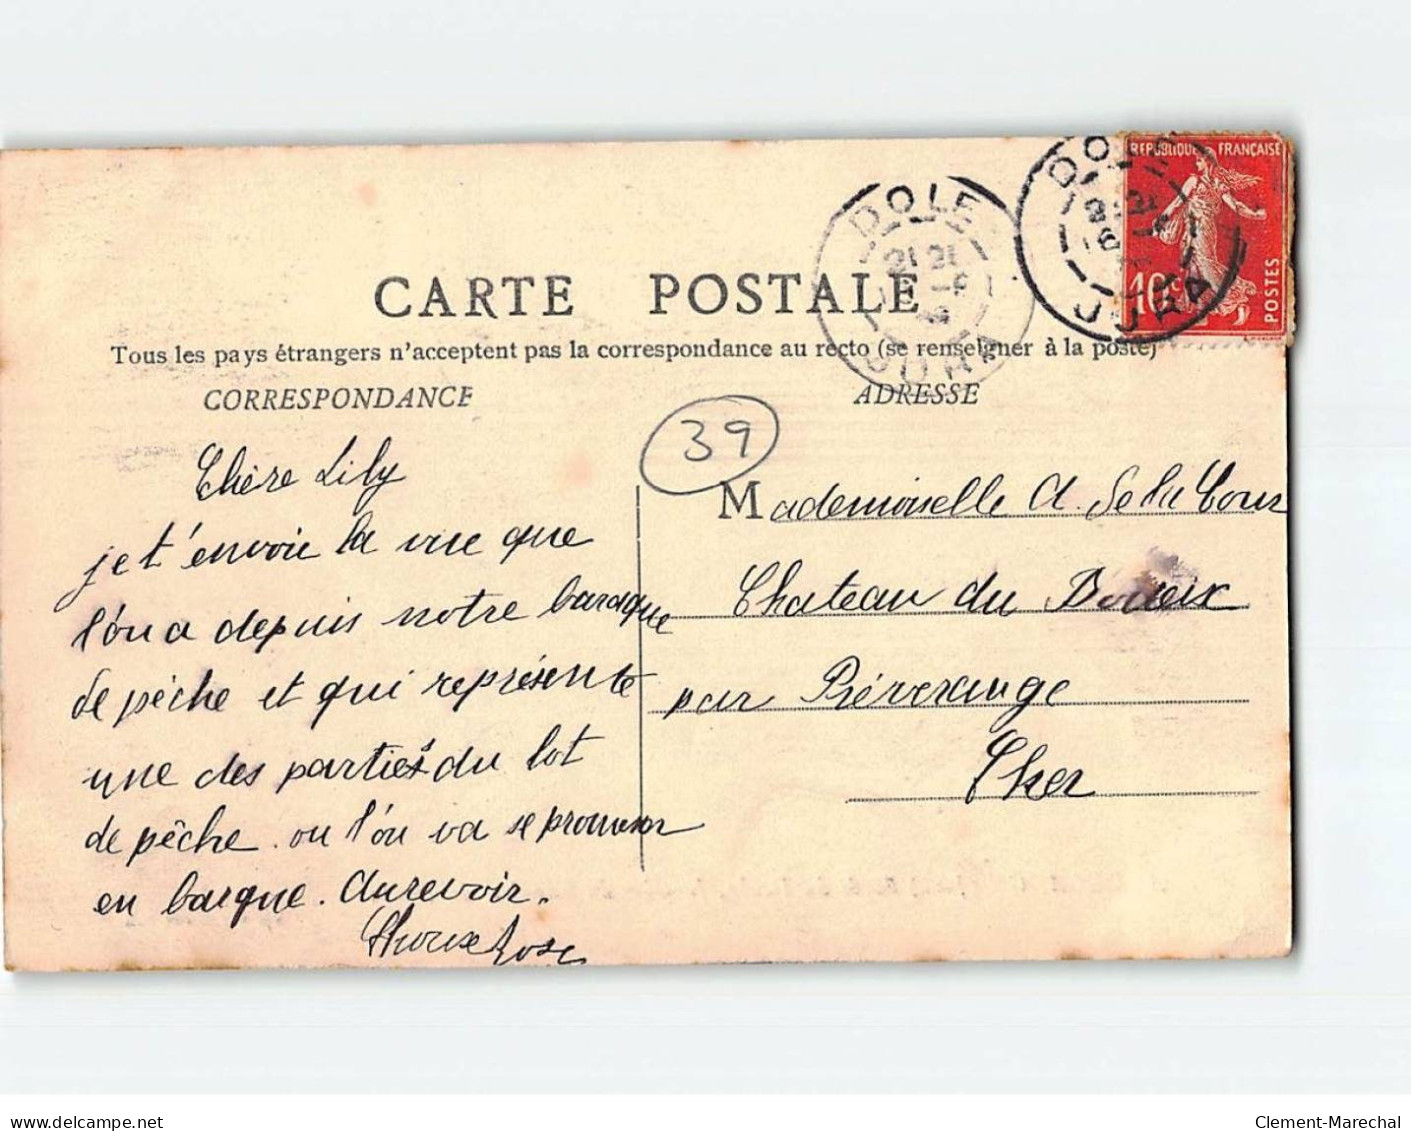 REPUBLIQUE FRANÇAISE
10c
POSTES
DOLE
JURA
DOLE
JURA
CARTE POSTALE
Tous les pays étrangers n'acceptent pas la correspondance au recto (se renseigner à la poste)
CORRESPONDANCE
ADRESSE
39
Chère Lily
je t'envoie la vue que
l'on a depuis notre baraque
de pêche et qui représente
une des parties du lot
de pêche ou l'on va se promener
en barque. Aurevoir.
Mademoiselle A. de la Cour
Chateau du
par Préveranges
Cher
delcampe.net
Clement-Marechal